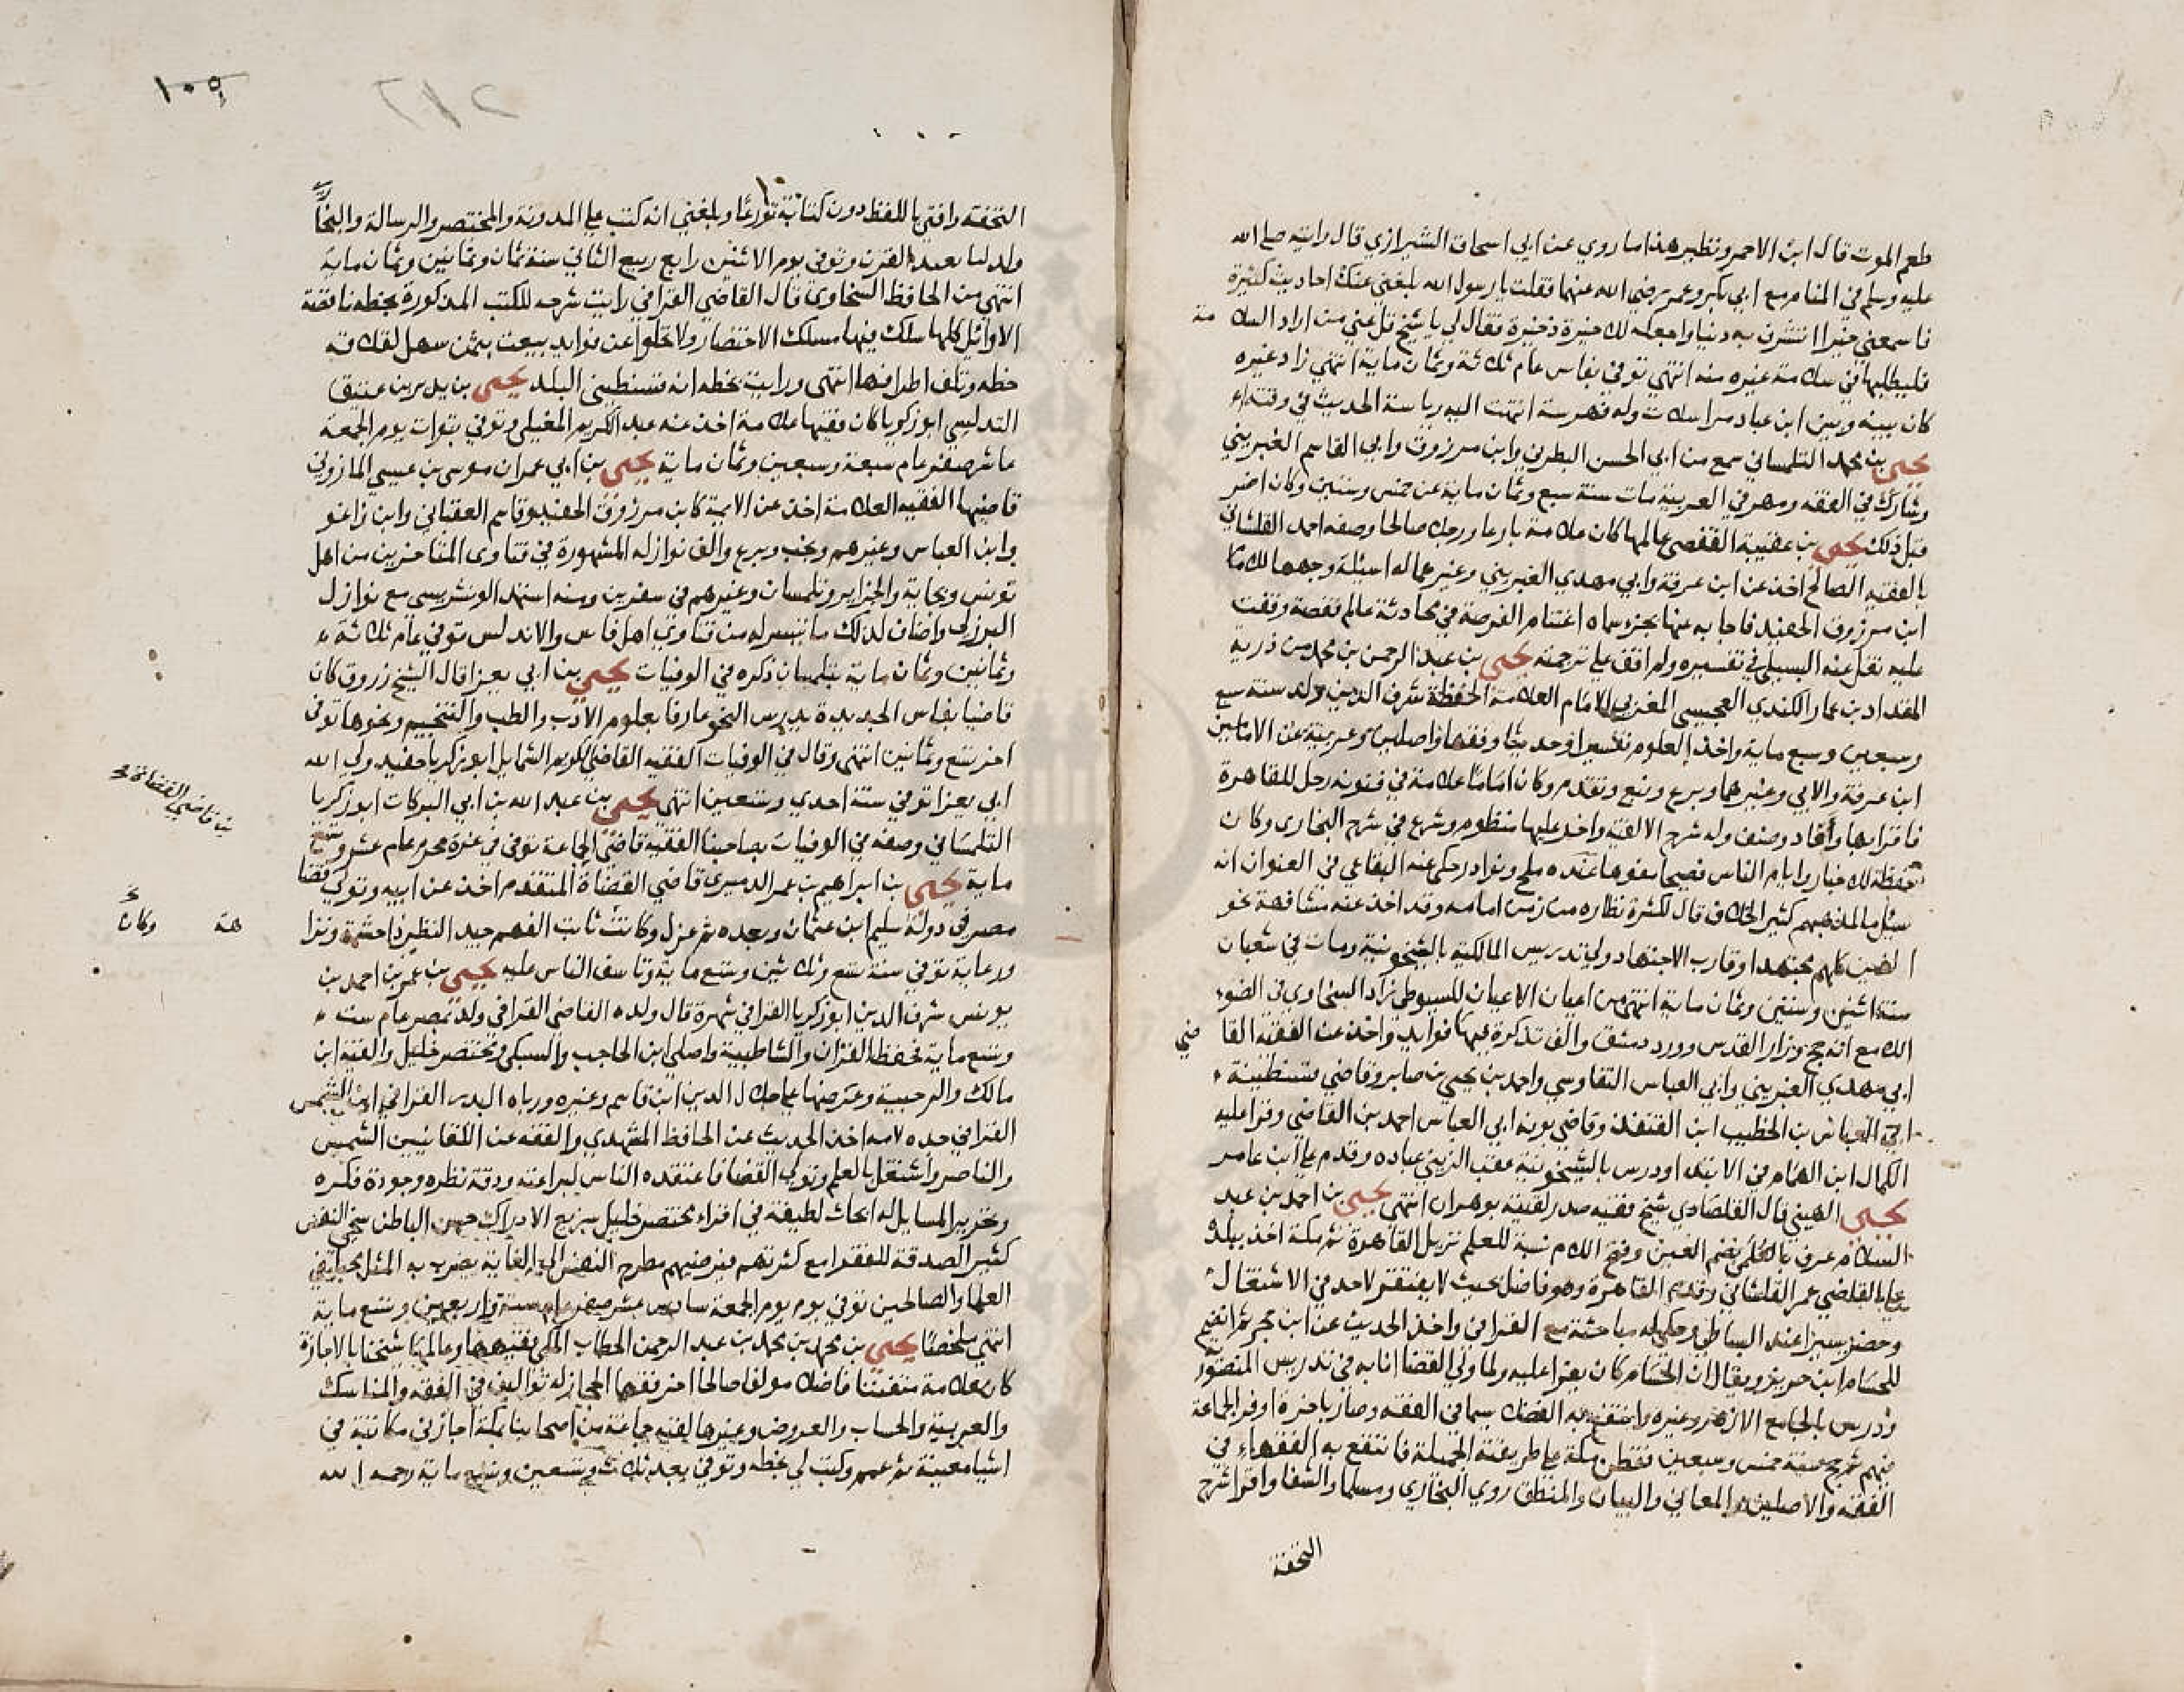 طعم الموت قال ابن الاحمر ونظير هذا ما روي عن ابي اسحاق الشيرازي قال رايته صلى الله
عليه وسلم في المنام مع ابي بكر وعمر رضي الله عنهما فقلت يا رسول الله بلغني عنك احاديث كثيرة
فاسمعني خيرا اتشرف به دنيا واجعله لك خيرة ذخيرة فقال لي يا شيخ قل عني من اراد السلامة
فليطلبها في سلامة غيره منه انتهى توفي بفاس عام ثلاثة وثمان ماية انتهى زاد غيره
كان بينه وبين ابن عباد مراسلات وله فهرسة انتهت اليه رياسة الحديث في وقته
يحيى بن محمد التلمساني سمع من ابي الحسن البطرني وابن مرزوق وابي القاسم الغبريني
وشارك في الفقه ومهر في العربية مات سنة سبع وثمان ماية عن خمس وستين وكان اضر
قبل ذلك يحيى بن عقيبة القفصي عالمها كان علامة بارعا ورجلا صالحا وصفه احمد القلشاني
بالفقيه الصالح اخذ عن ابن عرفة وابي مهدي الغبريني وغيرهما له اسئلة وجهها للامام
ابن مرزوق الحفيد فاجابه عنها بجزء سماه اغتنام الفرصة في محادثة عالم قفصة وقفت
عليه نقل عنه البسيلي في تفسيره ولم اقف على ترجمته يحيى بن عبد الرحمن بن محمد من ذرية
المقداد بن عمار الكندي العجيسي المغربي الامام العلامة الحفظة شرف الدين ولد سنة سبع
وسبعين وسبع ماية واخذ العلوم تفسيرا وحديثا وفقها واصلين وعربية عن الامامين
ابن عرفة والابي وغيرهما وبرع وتفنن وتقدم وكان اماما علامة في فنونه رحل للقاهرة
فاقرا بها وافاد وصنف وله شرح الالفية واخذ عليها منظوم وشرع في شرح البخاري وكان
حفظة للاخبار وايام الناس فصيحا مفوها عنده ملح ونوادر حكى عنه البقاعي في العنوان انه
سئل ما لمذهبهم كثير الخلاف قال لكثرة نظاره من زمن امامه وقد اخذ عنه مشافهة نحو
الفين كلهم مجتهدا وقارب الاجتهاد ولي تدريس المالكية بالشيخونية ومات في شعبان
سنة اثنين وستين وثمان ماية انتهى من اعيان الاعيان للسيوطي زاد السخاوي في الضوء
اللامع انه حج وزار القدس وورد دمشق والف تذكرة فيها فوايد واخذ عنه الفقه القاضي
ابي مهدي الغبريني وابي العباس النقاوسي واحمد بن يحيى بن صابر وقاضي قسنطينة
ابي العباس بن الخطيب ابن القنفذ وقاضي بونه ابي العباس احمد بن القاضي وقرا عليه
الكمال ابن الهمام في الابتدا ودرس بالشيخونية عقب الزيني عباده وقدم على ابن عامر
يحيى الهيني قال القلصادي شيخ فقيه صدر لقيته بوهران انتهى يحيى بن احمد بن عبد
السلام عرف بالعلمي بضم العين وفتح اللام نسبة للعلم نزيل القاهرة ثم مكة اخذ ببلده
على القاضي عمر القلشاني وقدم القاهرة وهو فاضل بحيث لا يفتقر لاحد في الاشتغال
وحضر يسيرا عند البساطي وحكى له مباحثة مع القرافي واخذ الحديث عن ابن حجر ثم انضم
للحسام ابن حريز ويقال ان الحسام كان يقرا عليه ولما ولي القضا انابه في تدريس المنصورية
ودرس بالجامع الازهر وغيره وانتفع به الفضلا سيما في الفقه وصار باخرة اوفر الجماعة
فيهم ثم حج سنة خمس وسبعين فقطن مكة على طريقته الجميلة فانتفع به الفقهاء في
الفقه والاصلين والمعاني والبيان والمنطق روي البخاري ومسلما والشفا واقرا شرح
التحفة
١٠٥
٢١٢
التحفة وافتي باللفظ دون كتابة تورعا وبلغني انه كتب على المدونة والمختصر والرسالة والبخاري
ولد لما بعيد القرن وتوفي يوم الاثنين رابع ربيع الثاني سنة ثمان وثمانين وثمان ماية
انتهى من الحافظ السخاوي قال القاضي القرافي رايت شرحه للكتب المذكورة بخطه ناقصة
الاوائل كلها سلك فيها مسلك الاختصار ولا تخلوا عن فوايد بيعت بثمن سهل لقلاقة
خطه وتلف اطرافها انتهى ورايت بخطه انه قسنطيني البلد يحيى بن يدير بن عتيق
التدلسي ابو زكريا كان فقيها علامة اخذ عنه عبد الكريم المغيلي وتوفي بتوات يوم الجمعة
عاشر صفر عام سبعة وسبعين وثمان ماية يحيى بن ابي عمران موسى بن عيسى المازوني
قاضيها الفقيه العلامة اخذ عن الايمة كابن مرزوق الحفيد وقاسم العقباني وابن زاغو
وابن العباس وغيرهم ونجب وبرع والف نوازله المشهورة في فتاوى المتاخرين من اهل
تونس وبجاية والجزاير وتلمسان وغيرهم في سفرين ومنه استمد الونشريسي مع نوازل
البرزلى واضاف لذلك ما تيسر له من فتاوى اهل فاس والاندلس توفي عام ثلاثة
وثمانين وثمان ماية بتلمسان ذكره في الوفيات يحيى بن ابي يعزا قال الشيخ زروق كان
قاضيا بفاس الجديدة يدرس النحو عارفا بعلوم الادب والطب والتنجيم ونحوها توفى
اخر تسع وثمانين انتهى وقال في الوفيات الفقيه القاضي كريم الشمايل ابو زكريا حفيد ولي الله
ابي يعزا توفي سنة احدي وتسعين انتهى يحيى بن عبد الله بن ابي البركات ابو زكريا
التلمساني وصفه في الوفيات بصاحبنا الفقيه قاضي الجماعة توفي في غرة محرم عام عشر وتسع
بن قاضي القضاة
ماية يحيى بن ابراهيم بن عمر الدميري قاضي القضاة المتقدم اخذ عن ابيه وتولى قضا
مصر في دولة سليم ابن عثمان وبعده ثم عزل وكانت ثابت الفهم جيد النظر ذا حشمة ونزا
هة وكان
ورعاية توفي سنة تسع وثلاثين وتسع ماية وتاسف الناس عليه يحيى بن عمر بن احمد بن
يونس شرف الدين ابو زكريا القرافي شهرة قال ولده القاضي القرافي ولد بمصر عام ست
وتسع ماية فحفظ القران والشاطبية واصلى ابن الحاجب والسبكي ومختصر خليل والفية ابن
مالك والرحبية وعرضها على جلال الدين ابن قاسم وغيره ورباه البدر القرافي ابن الشمس
القرافي جده لامه اخذ الحديث عن الحافظ المشهدي والفقه عن اللقانيين الشمس
والناصر واشتغل بالعلم وتولى القضا فاعتقده الناس لبراعته ودقة نظره وجودة فكره
وتحرير المسايل له ابحاث لطيفة في اقراء مختصر خليل سريع الادراك حسن الباطن سخي النفس
كثير الصدقة للفقرا مع كثرتهم فيرضيهم مطرح النفس الى الغاية يضرب به المثل
العلما والصالحين توفي يوم يوم الجمعة سادس عشر صفر عام ستة واربعين وتسع ماية
انتهى ملخصا يحيى بن محمد بن محمد بن عبد الرحمن الحطاب المكي فقيهها وعالمها شيخنا بالاجازة
كان علامة متفننا فاضلا مولفا صالحا اخر فقها الحجاز له تواليف في الفقه والمناسك
والعربية والحساب والعروض وغيرها لقيه جماعة من اصحابنا بمكة اجازني مكاتبة في
اشيا معينة ثم عمم وكتب لي بخطه وتوفي بعد ثلاث وتسعين وتسع ماية رحمه الله